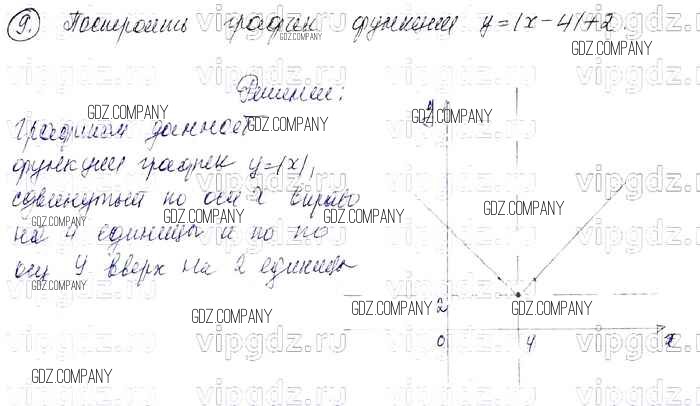 9. Построить график функции y=|x-4|+2.
Решение:
Графиком данной
функции график y=|x|,
сдвинутый по оси X вправо
на 4 единицы и по по
оси y вверх на 2 единицы
y
2
0 4 x
GDZ.COMPANY
GDZ.COMPANY
GDZ.COMPANY
GDZ.COMPANY
GDZ.COMPANY
GDZ.COMPANY
GDZ.COMPANY
GDZ.COMPANY
GDZ.COMPANY
GDZ.COMPANY
GDZ.COMPANY
GDZ.COMPANY
GDZ.COMPANY
vipgdz.ru
vipgdz.ru
vipgdz.ru
vipgdz.ru
vipgdz.ru
vipgdz.ru